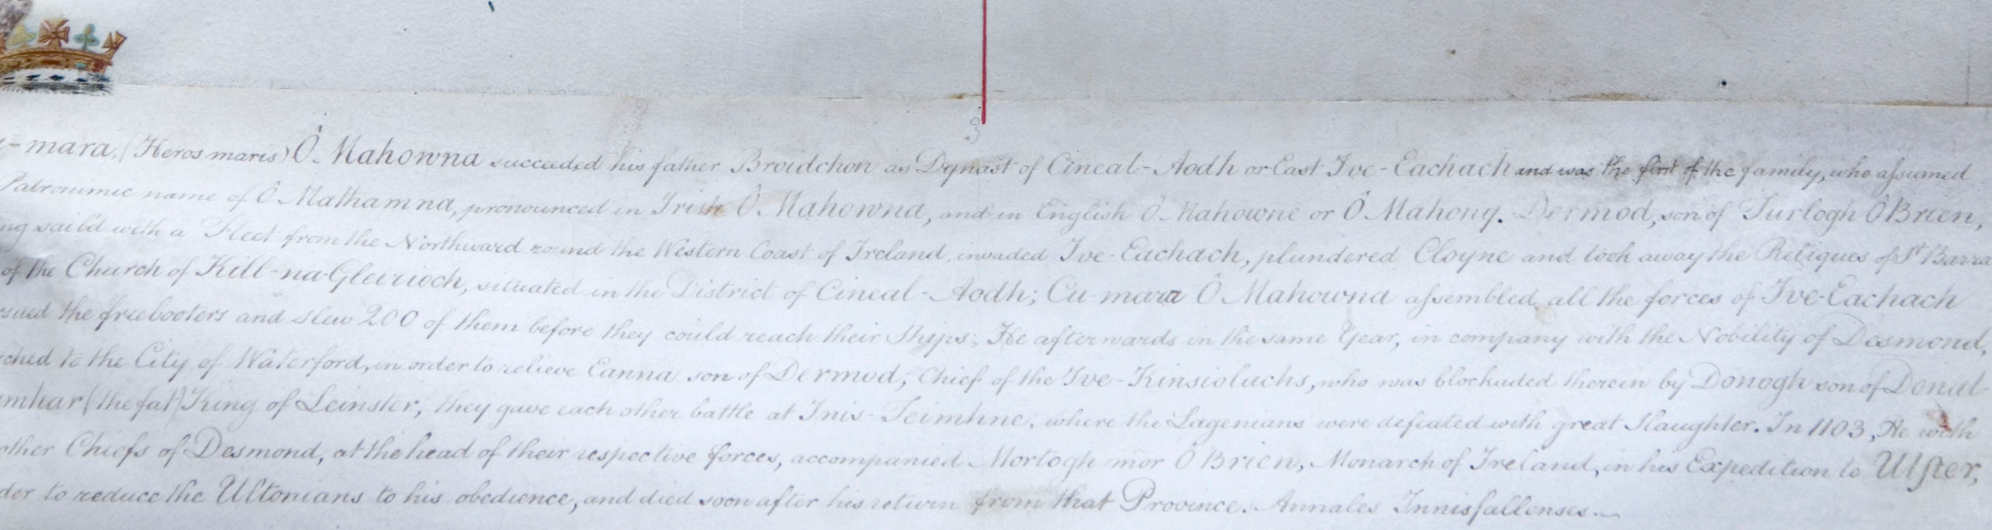 3
-mara. (Heros maris) O'Mahowna succeeded his father Broidchon as Dynast of Cineal-Aodh or East Ive-Eachach and was the first of the family, who assumed
Patronimic name of O'Mathamna, pronounced in Irish O'Mahowna, and in English O'Mahowne or O'Mahony. Dermod, son of Turlogh O'Brien,
ng sail'd with a Fleet from the Northward round the Western Coast of Ireland, invaded Ive-Eachach, plundered Cloyne and took away the Reliques of St Barra
of the Church of Kill-na-Gleirioch, situated in the District of Cineal-Aodh; Cu-mara O'Mahowna assembled all the forces of Ive-Eachach
sued the freebooters and slew 200 of them before they could reach their Ships; He afterwards in the same Year, in company with the Nobility of Desmond,
ched to the City of Waterford, in order to relieve Eanna son of Dermod, Chief of the Ive-Kinsioluchs, who was blockaded therein by Donogh son of Donal-
mhar (the fat) King of Leinster, they gave each other battle at Inis-Teimhne, where the Lagenians were defeated with great slaughter. In 1103, He with
other Chiefs of Desmond, at the head of their respective forces, accompanied Mortogh mor O'Brien, Monarch of Ireland, in his Expedition to Ulster,
der to reduce the Ultonians to his obedience, and died soon after his return from that Province. Annales Innisfallenses.